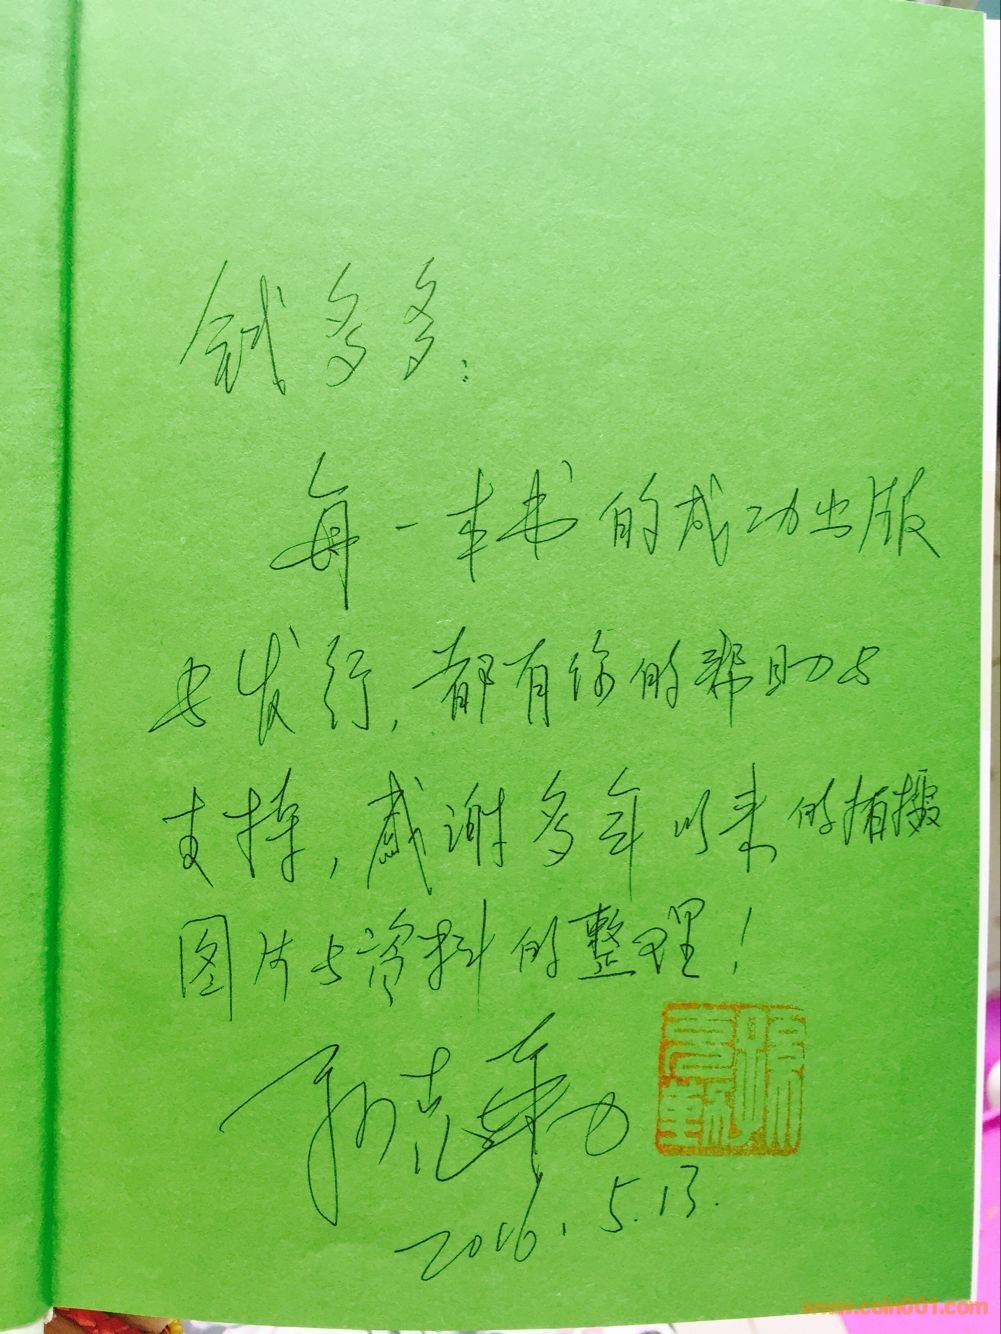 钱多多:
每一本书的成功出版
与发行,都有你的帮助与
支持,感谢多年以来的拍摄
图片与资料的整理!
孙克勤
孙克勤
2016.5.13.
www.coin001.com